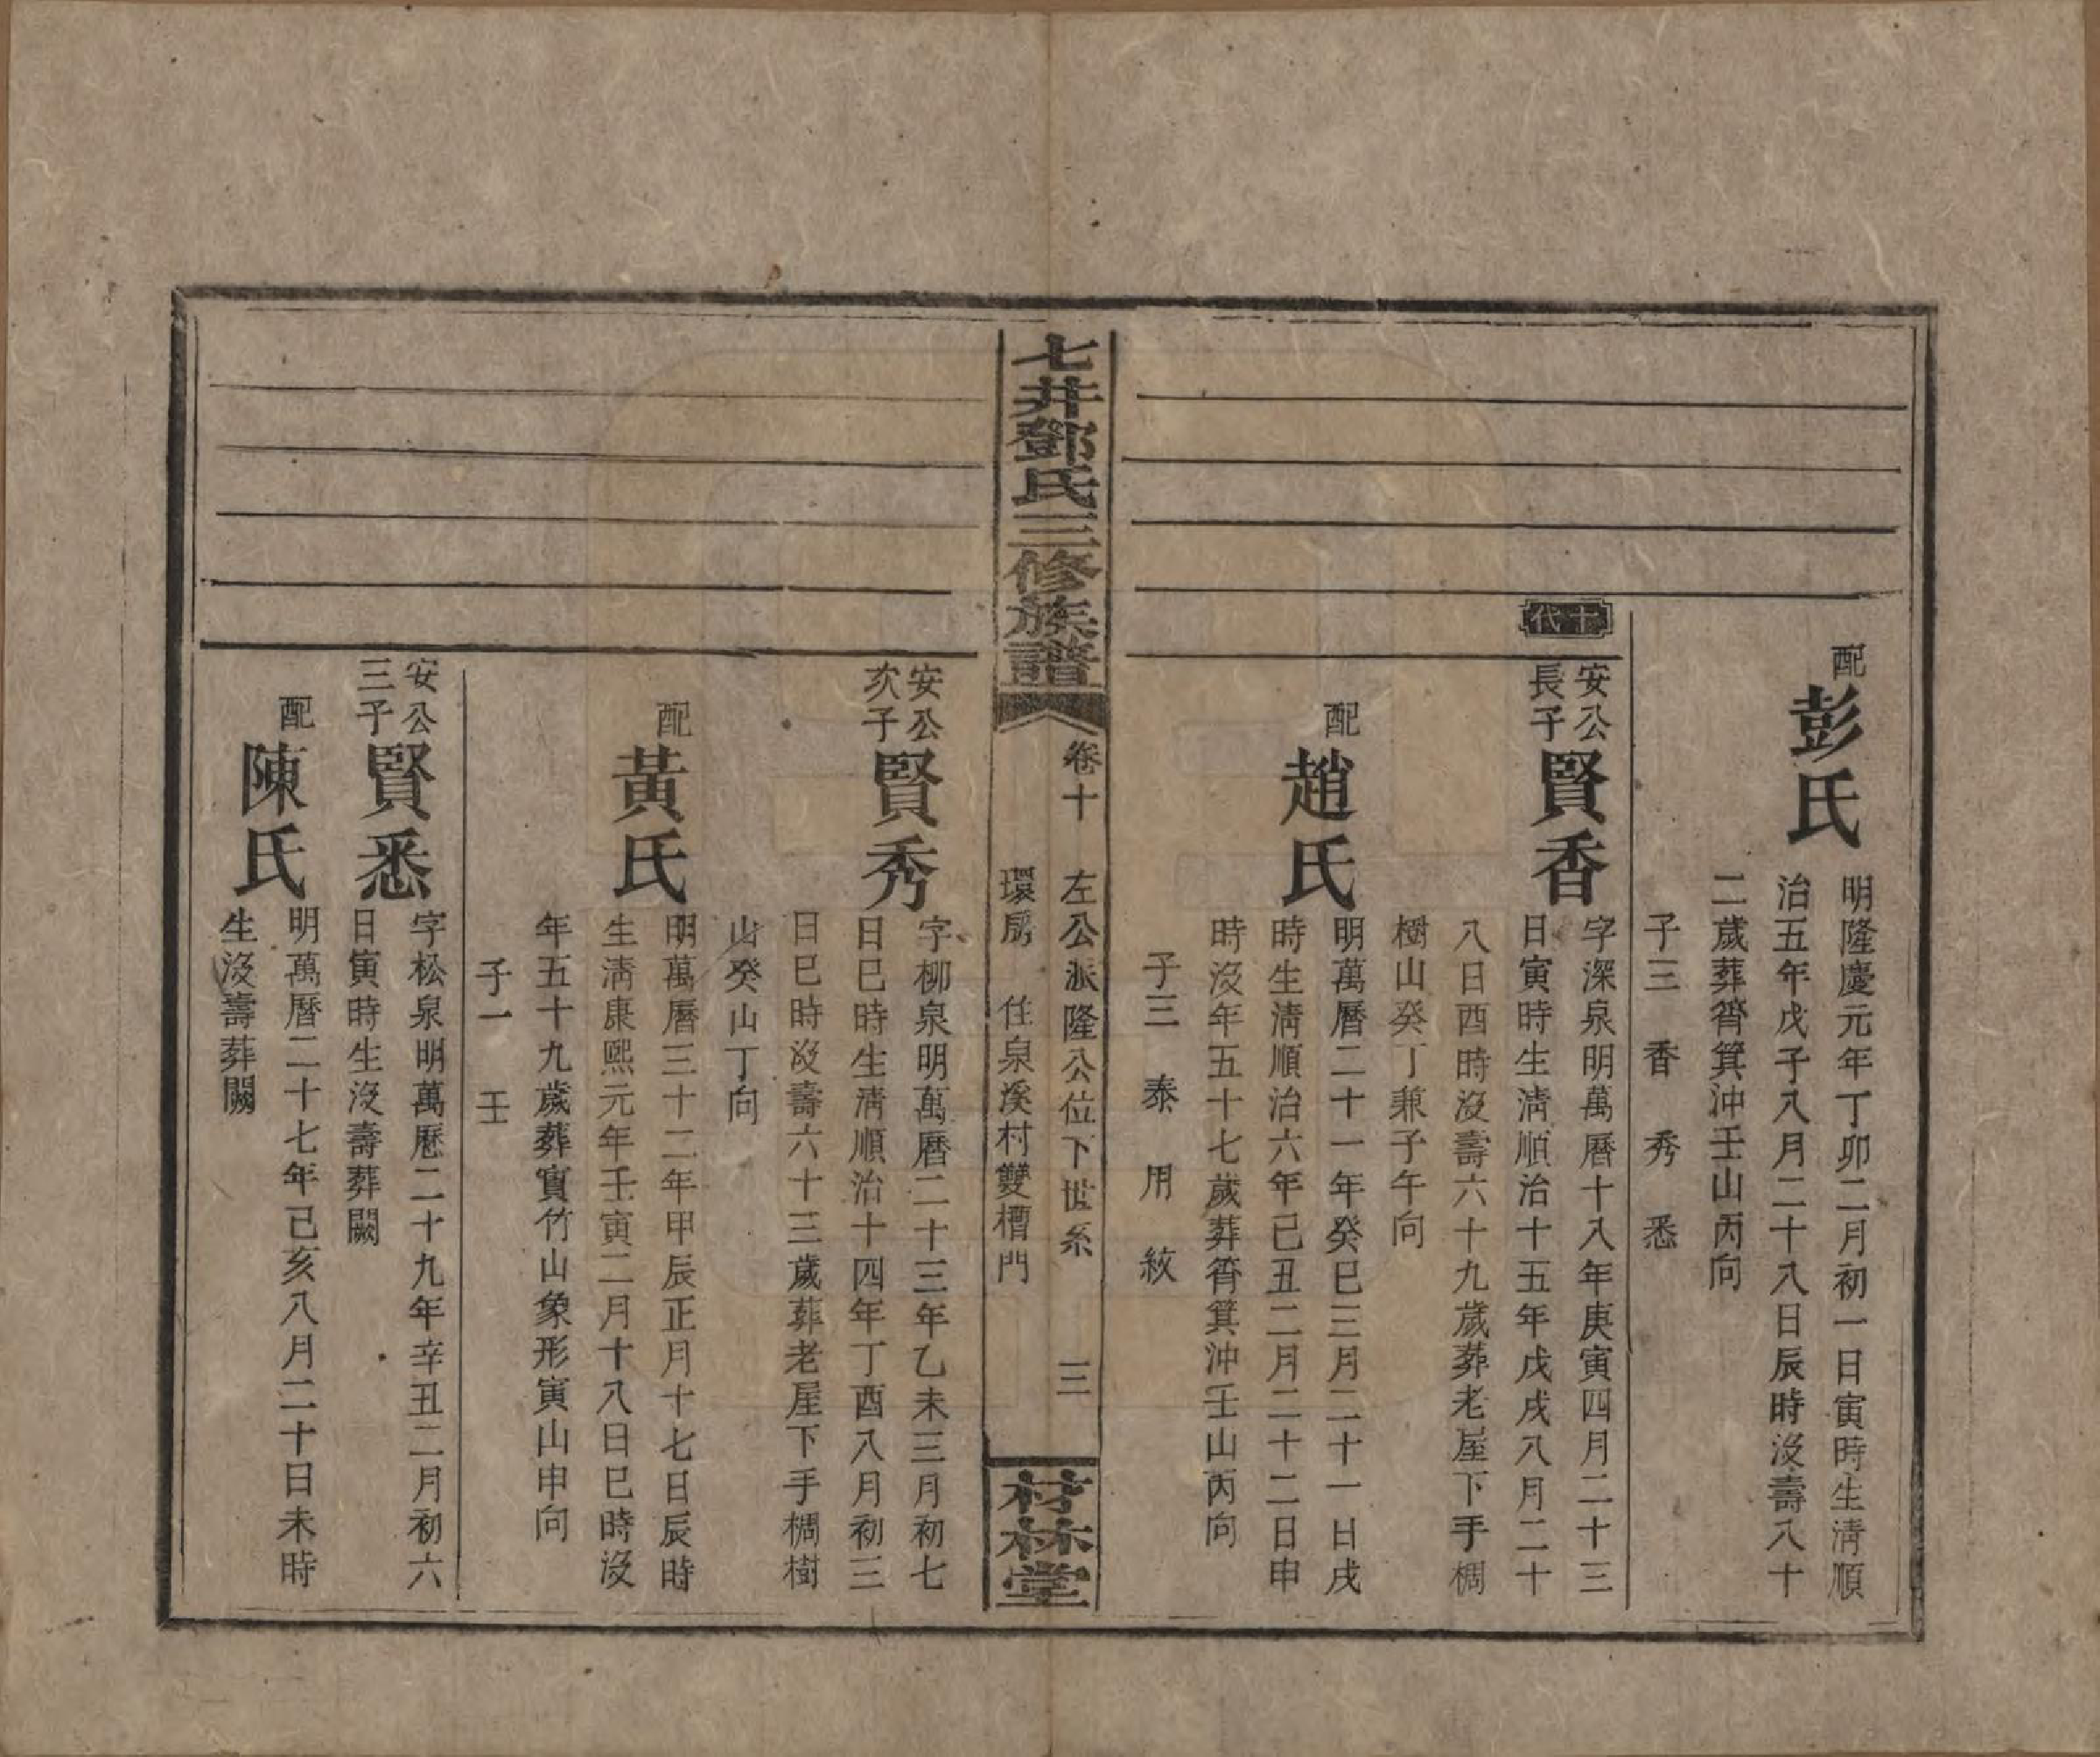 配
彭氏
明隆慶元年丁卯二月初一日寅時生清順
治五年戊子八月二十八日辰時沒壽八十
二歲葬筲箕沖壬山丙向
子三 香 秀 悉
十代
安公
長子
賢香
字深泉明萬曆十八年庚寅四月二十三
日寅時生清順治十五年戊戌八月二十
八日酉時沒壽六十九歲葬老屋下手椆
樹山癸丁兼子午向
配
趙氏
明萬曆二十一年癸巳三月二十一日戌
時生清順治六年己丑二月二十二日申
時沒年五十七歲葬筲箕沖壬山丙向
子三 泰 用 紋
七井鄧氏三修族譜
卷十
左公派隆公位下世系
三
環房 住泉溪村雙槽門
材林堂
安公
次子
賢秀
字柳泉明萬曆二十三年乙未三月初七
日巳時生清順治十四年丁酉八月初三
日巳時沒壽六十三歲葬老屋下手椆樹
山癸山丁向
配
黃氏
明萬曆三十二年甲辰正月十七日辰時
生清康熙元年壬寅二月十八日巳時沒
年五十九歲葬實竹山象形寅山申向
子一 壬
安公
三子
賢悉
字松泉明萬歷二十九年辛丑二月初六
日寅時生沒壽葬闕
配
陳氏
明萬曆二十七年己亥八月二十日未時
生沒壽葬闕